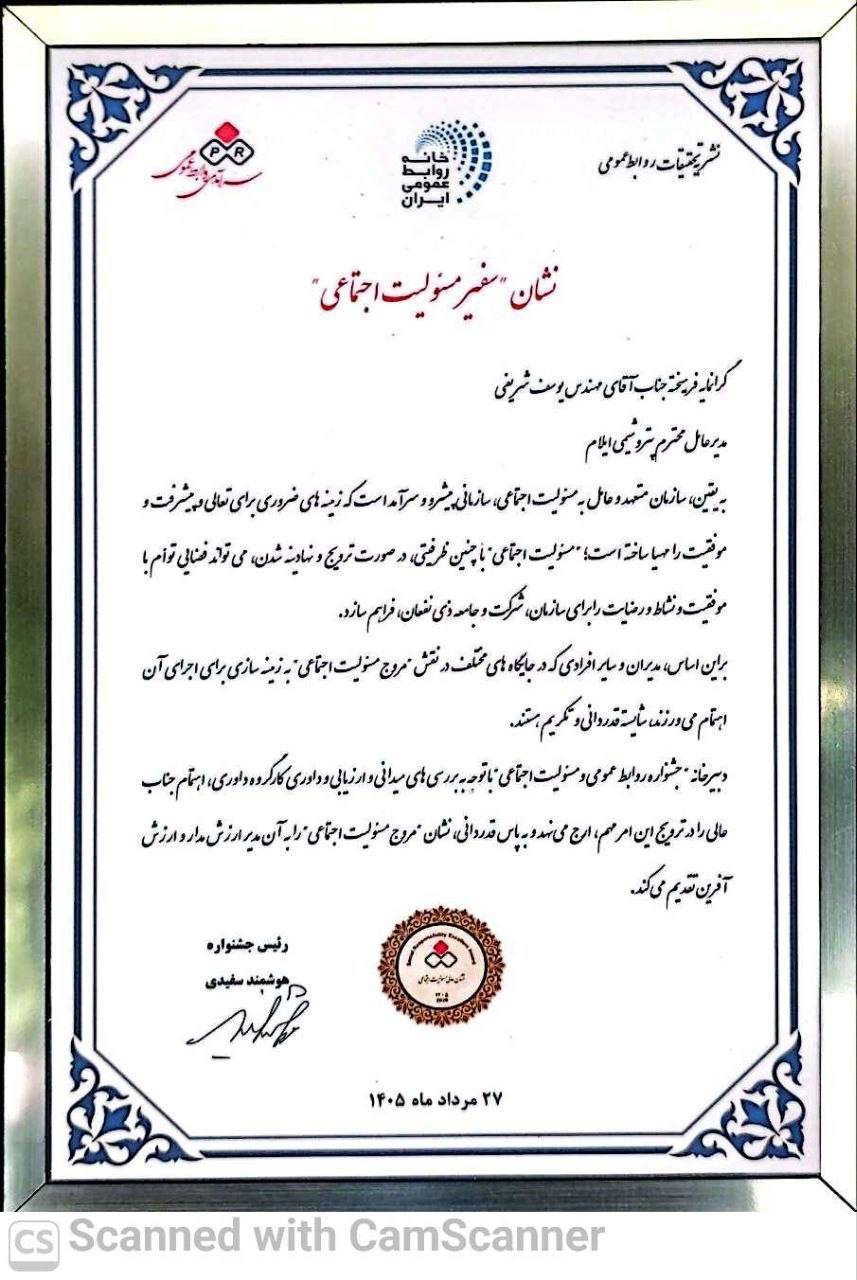 نشریه تحقیقات روابط عمومی
خانه
روابط
عمومی
ایران
PR
سرآمدی روابط عمومی
نشان "سفیر مسئولیت اجتماعی"
گرانمایه فرهیخته جناب آقای مهندس یوسف شریفی
مدیرعامل محترم پتروشیمی ایلام
به یقین، سازمان متعهد و عامل به مسئولیت اجتماعی، سازمانی پیشرو و سرآمد است که زمینه های ضروری برای تعالی و پیشرفت و
موفقیت را مهیا ساخته است؛ "مسئولیت اجتماعی" با چنین ظرفیتی، در صورت ترویج و نهادینه شدن، می تواند فضایی توأم با
موفقیت و نشاط و رضایت را برای سازمان، شرکت و جامعه ذی نفعان، فراهم سازد.
براین اساس، مدیران و سایر افرادی که در جایگاه های مختلف در نقش "مروج مسئولیت اجتماعی" به زمینه سازی برای اجرای آن
اهتمام می ورزند، شایسته قدردانی و تکریم هستند.
دبیرخانه "جشنواره روابط عمومی و مسئولیت اجتماعی" با توجه به بررسی های میدانی و ارزیابی و داوری کارگروه داوری، اهتمام جناب
عالی را در ترویج این امر مهم، ارج می نهد و به پاس قدردانی، نشان "مروج مسئولیت اجتماعی" را به آن مدیر ارزش مدار و ارزش
آفرین تقدیم می کند.
رئیس جشنواره
هوشمند سفیدی
Social Responsibility Excellent Award
نشان عالی مسئولیت اجتماعی
۱۴۰۵
2026
۲۷ مرداد ماه ۱۴۰۵
CS Scanned with CamScanner